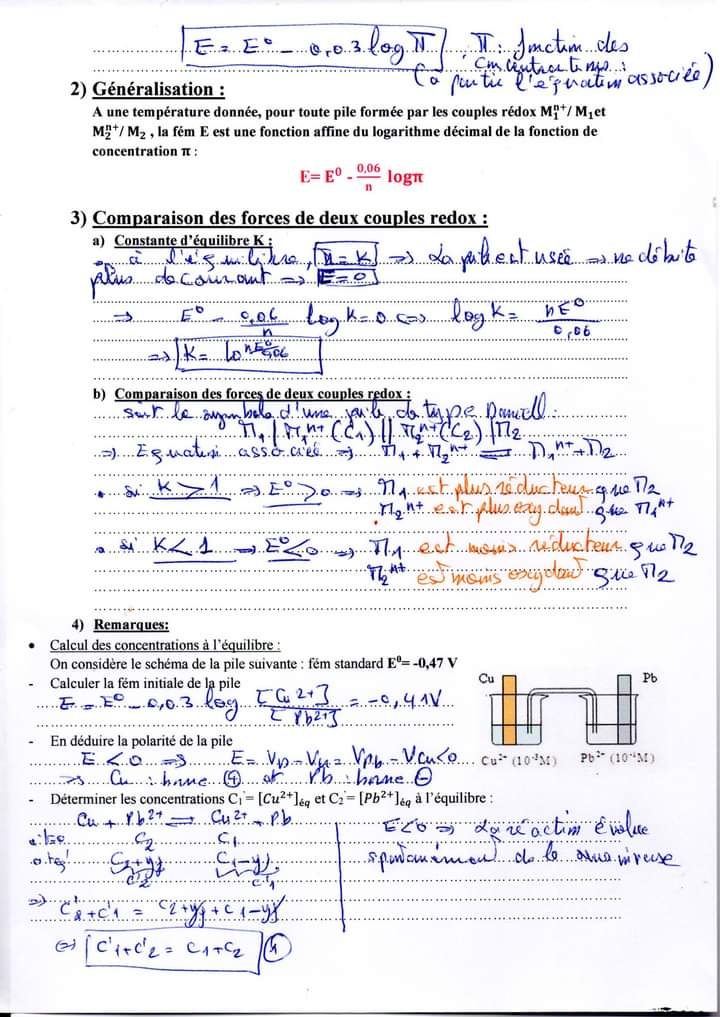 E = E⁰ - 0,03 log Π . Π : fonction des
concentrations
(à partir l'equation associée)
2) Généralisation :
A une température donnée, pour toute pile formée par les couples rédox M₁ⁿ⁺/ M₁et
M₂ⁿ⁺/ M₂ , la fém E est une fonction affine du logarithme décimal de la fonction de
concentration π :
E= E⁰ - 0,06/n logπ
3) Comparaison des forces de deux couples redox :
a) Constante d'équilibre K :
à l'équilibre, Π = K => La pile est usée => ne débite
plus de courant => E = 0
=> E⁰ - 0,06/n log K = 0 <=> log K = nE⁰/0,06
=> K = 10^(nE⁰/0,06)
b) Comparaison des forces de deux couples redox :
soit le symbole d'une pile de type Daniell :
M₁ | M₁ⁿ⁺ (C₁) || M₂ⁿ⁺ (C₂) | M₂
=> Equation associée => M₁ + M₂ⁿ⁺ ⇌ M₁ⁿ⁺ + M₂
• si K > 1 => E⁰ > 0 => M₁ est plus réducteur que M₂
M₂ⁿ⁺ est plus oxydant que M₁ⁿ⁺
• si K < 1 => E⁰ < 0 => M₁ est moins réducteur que M₂
M₂ⁿ⁺ est moins oxydant que M₂
4) Remarques:
• Calcul des concentrations à l'équilibre :
On considère le schéma de la pile suivante : fém standard E⁰= -0,47 V
- Calculer la fém initiale de la pile
E = E⁰ - 0,03 log [Cu²⁺]/[Pb²⁺] = -0,41V
Cu Pb
Cu²⁺ (10⁻³M) Pb²⁺ (10⁻¹M)
- En déduire la polarité de la pile
E < 0 => E = VD - VG = VPb - VCu < 0
=> Cu : borne ⊕ et Pb : borne ⊖
- Déterminer les concentrations C₁'= [Cu²⁺]éq et C₂'= [Pb²⁺]éq à l'équilibre :
Cu + Pb²⁺ ⇌ Cu²⁺ + Pb
à t=0 C₂ C₁
à t éq C₂+yf C₁-yf
C'₂ C'₁
E<0 => La réaction évolue
spontanément de le sens inverse
=> C'₂+C'₁ = C₂+yf + C₁-yf
<=> C'₁+C'₂ = C₁+C₂ (1)